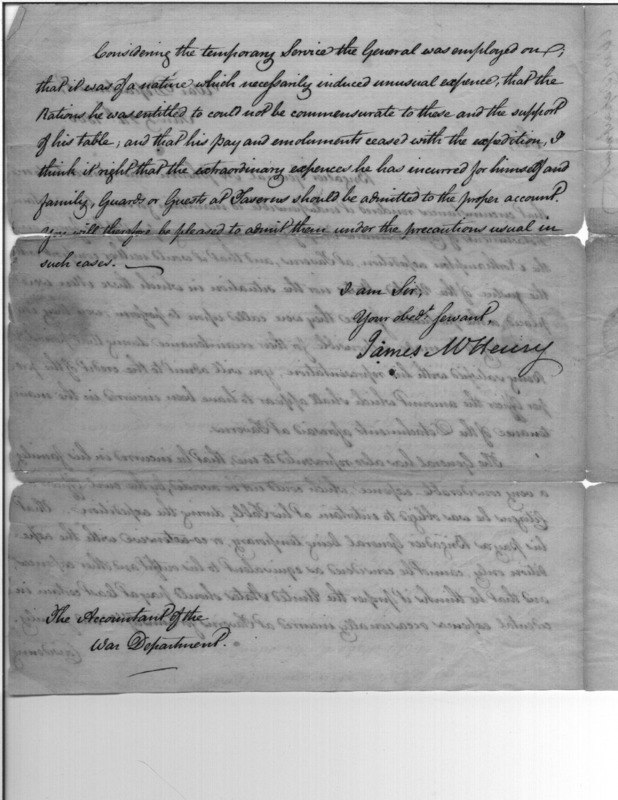 Considering the temporary Service the General was employed on;
that it was of a nature which necessarily induced unusual expence; that the
Rations he was entitled to could not be commensurate to these and the support
of his table; and that his pay and emoluments ceased with the expedition, I
think it right that the extraordinary expences he has incurred for himself and
family, Guards or Guests at Taverns should be admitted to the proper account.
You will therefore be pleased to admit them under the precautions usual in
such cases.
I am Sir,
Your obedt. servant,
James McHenry
The Accountant of the
War Department.